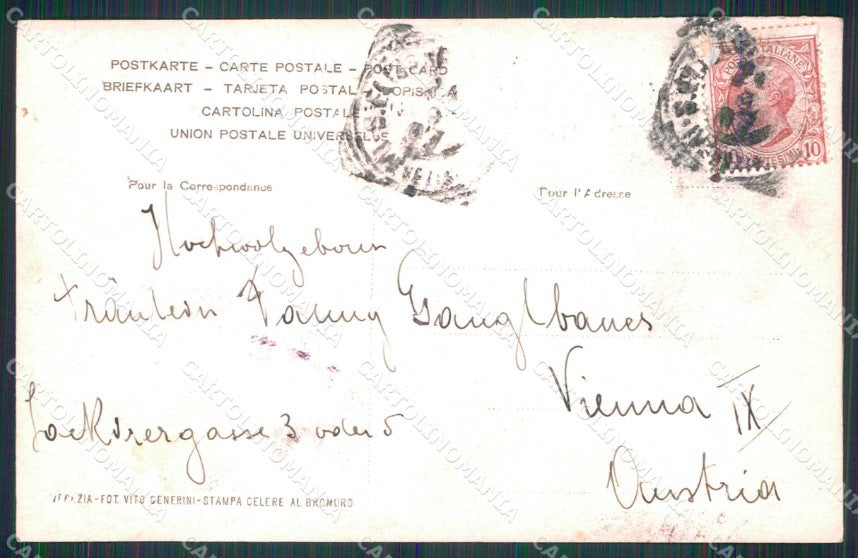 POSTKARTE – CARTE POSTALE – POST CARD
BRIEFKAART – TARJETA POSTAL – DOPISNICA
CARTOLINA POSTALE
UNION POSTALE UNIVERSELLE
POSTE ITALIANE
10
Pour la Correspondance
Pour l'Adresse
Hochwolgeboren
Fräulein Fanny
Vienna IX
gasse 3 oder 5
Austria
VENEZIA-FOT. VITO GENERINI-STAMPA CELERE AL BROMURO
CARTOLINOMANIA